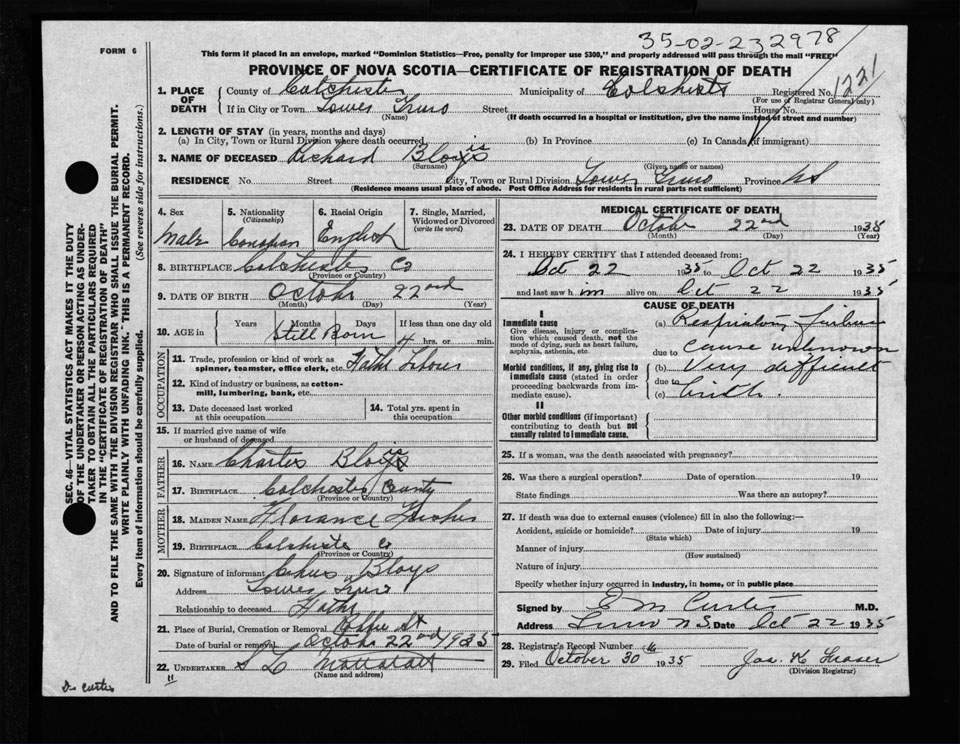 FORM 6
35-02-232978
This form if placed in an envelope, marked "Dominion Statistics—Free, penalty for improper use $300," and properly addressed will pass through the mail "FREE"
PROVINCE OF NOVA SCOTIA—CERTIFICATE OF REGISTRATION OF DEATH
1221
1. PLACE OF DEATH County of Colchester Municipality of Colchester Registered No.
(For use of Registrar General only)
If in City or Town Lower Truro Street House No.
(Name) (If death occurred in a hospital or institution, give the name instead of street and number)
2. LENGTH OF STAY (in years, months and days)
(a) In City, Town or Rural Division where death occurred (b) In Province (c) In Canada (if immigrant)
3. NAME OF DECEASED Richard Bloys
(Surname) (Given name or names)
RESIDENCE No. Street City, Town or Rural Division Lower Truro Province NS
(Residence means usual place of abode. Post Office Address for residents in rural parts not sufficient)
4. Sex Male
5. Nationality (Citizenship) Canadian
6. Racial Origin English
7. Single, Married, Widowed or Divorced (write the word)
8. BIRTHPLACE Colchester Co
(Province or Country)
9. DATE OF BIRTH Octobr 22nd
(Month) (Day) (Year)
10. AGE in Years Months Days If less than one day old
Still Born 4 hrs. or min.
OCCUPATION
11. Trade, profession or kind of work as spinner, teamster, office clerk, etc.
12. Kind of industry or business, as cotton-mill, lumbering, bank, etc.
13. Date deceased last worked at this occupation
14. Total yrs. spent in this occupation
15. If married give name of wife or husband of deceased
FATHER
16. NAME Charles Bloys
17. BIRTHPLACE Colchester County
(Province or Country)
MOTHER
18. MAIDEN NAME Florance
19. BIRTHPLACE Colchester Co
(Province or Country)
20. Signature of informant Chas Bloys
Address Lower Truro
Relationship to deceased Father
21. Place of Burial, Cremation or Removal
Date of burial or removal Octobr 22nd 1935
22. UNDERTAKER
(Name and address)
MEDICAL CERTIFICATE OF DEATH
23. DATE OF DEATH Octobr 22nd 1935
(Month) (Day) (Year)
24. I HEREBY CERTIFY that I attended deceased from:
Oct 22 1935 to Oct 22 1935
and last saw him alive on Oct 22 1935
CAUSE OF DEATH
I
Immediate cause
Give disease, injury or complication which caused death, not the mode of dying, such as heart failure, asphyxia, asthenia, etc.
(a) Respiratory failure
due to cause unknown
Morbid conditions, if any, giving rise to immediate cause (stated in order proceeding backwards from immediate cause).
(b) Very difficult
due to
(c) birth.
II
Other morbid conditions (if important) contributing to death but not causally related to immediate cause.
25. If a woman, was the death associated with pregnancy?
26. Was there a surgical operation? Date of operation 19
State findings Was there an autopsy?
27. If death was due to external causes (violence) fill in also the following:—
Accident, suicide or homicide? Date of injury 19
(State which)
Manner of injury
(How sustained)
Nature of injury
Specify whether injury occurred in industry, in home, or in public place
Signed by E M Curtis M.D.
Address Truro N.S. Date Oct 22 1935
28. Registrar's Record Number
29. Filed October 30 1935 Jas. K Fraser
(Division Registrar)
SEC. 46—VITAL STATISTICS ACT MAKES IT THE DUTY
OF THE UNDERTAKER OR PERSON ACTING AS UNDER-
TAKER TO OBTAIN ALL THE PARTICULARS REQUIRED
IN THE "CERTIFICATE OF REGISTRATION OF DEATH"
AND TO FILE THE SAME WITH THE DIVISION REGISTRAR WHO SHALL ISSUE THE BURIAL PERMIT.
WRITE PLAINLY WITH UNFADING INK. THIS IS A PERMANENT RECORD.
Every item of information should be carefully supplied. (See reverse side for instructions.)
Dr Curtis